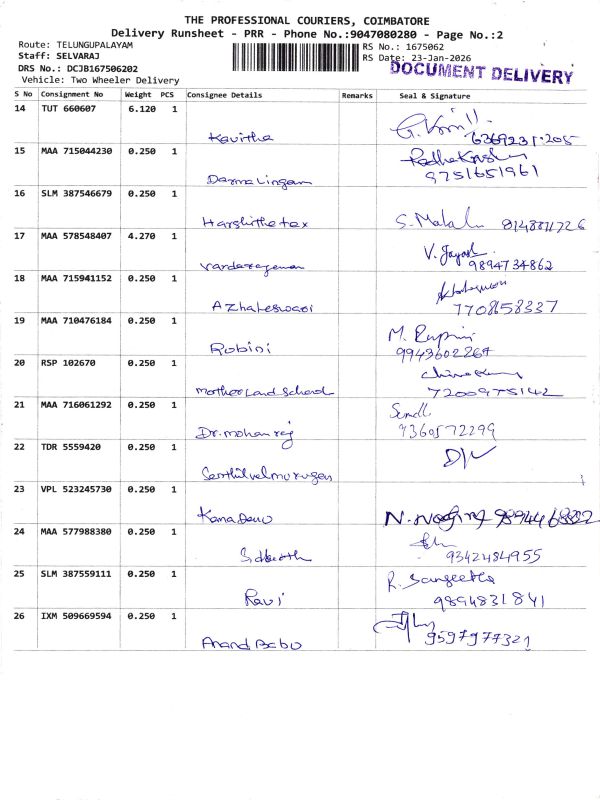 THE PROFESSIONAL COURIERS, COIMBATORE
Delivery Runsheet - PRR - Phone No.:9047080280 - Page No.:2
Route: TELUNGUPALAYAM
Staff: SELVARAJ
DRS No.: DCJB167506202
Vehicle: Two Wheeler Delivery
RS No.: 1675062
RS Date: 23-Jan-2026
DOCUMENT DELIVERY
S No Consignment No Weight PCS Consignee Details Remarks Seal & Signature
14 TUT 660607 6.120 1
Kavitha 6369231205
15 MAA 715044230 0.250 1
Darmalingam 9751651961
16 SLM 387546679 0.250 1
Harshithetex S. Malal
17 MAA 578548407 4.270 1
Vardaragaman V. Jayash 9894734862
18 MAA 715941152 0.250 1
Azhageswari 7708158337
19 MAA 710476184 0.250 1
Robini M. 9943602264
20 RSP 102670 0.250 1
Motherland School 7200975142
21 MAA 716061292 0.250 1
Dr. mohan raj 9360572299
22 TDR 5559420 0.250 1
Senthilvelmurugan
23 VPL 523245730 0.250 1
Kamadenu
24 MAA 577988380 0.250 1
Sidharth 9342484955
25 SLM 387559111 0.250 1
Ravi R. Sangeetha 9894831841
26 IXM 509669594 0.250 1
Anand Babu 9597977321